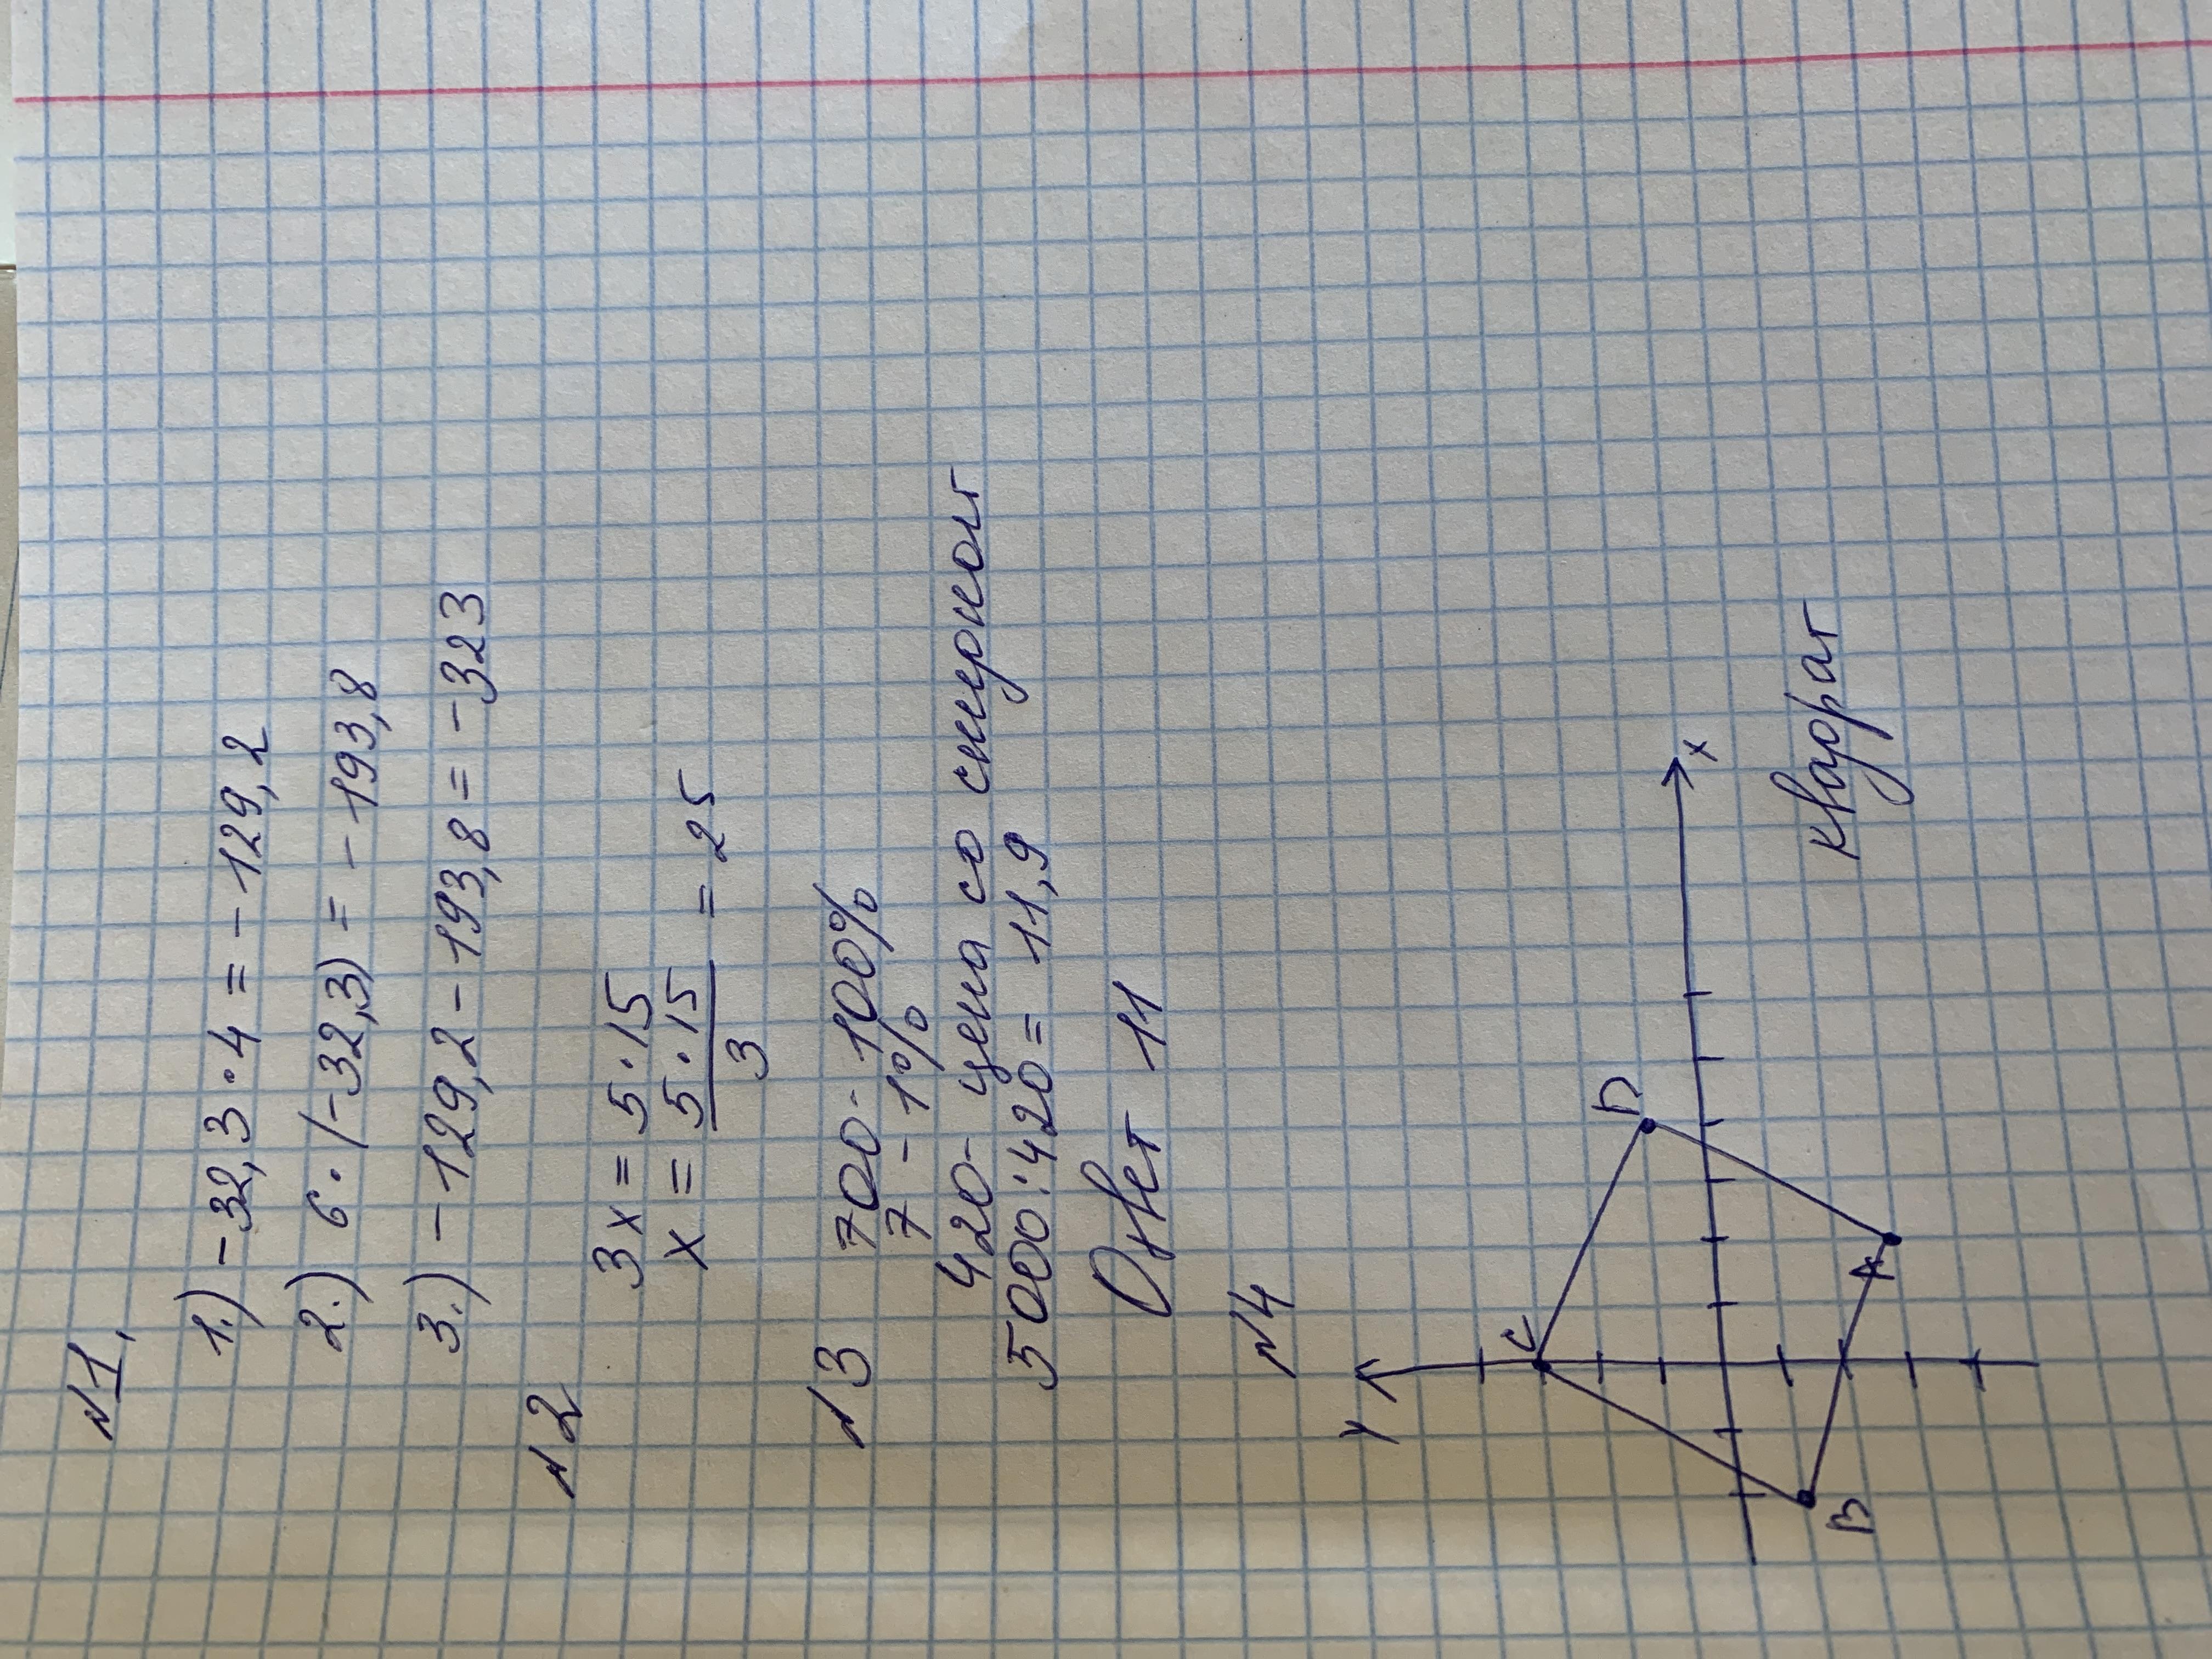 №1.
1.) -32,3·4 = -129,2
2.) 6·(-32,3) = -193,8
3.) -129,2-193,8 = -323
№2
3x = 5·15
x = 5·15/3 = 25
№3 700 - 100%
7 - 1%
420 - цена со
5000:420 = 11,9
Ответ 11
№4
y
C
D
x
A
B
квадрат